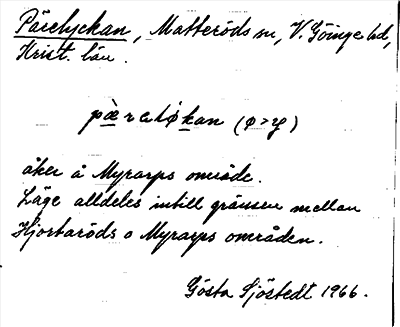 Pärelyckan, Matteröds sn, V. Göinge hd,
Krist. län.
åker å Myrarps område.
Läge alldeles intill gränsen mellan
Hjortaröds o Myrarps områden.
Gösta Sjöstedt 1966.